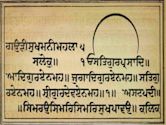 ਗਉੜੀਸੁਖਮਨੀਮਹਲਾ੫
ਸਲੋਕੁ॥ ੴਸਤਿਗੁਰਪ੍ਰਸਾਦਿ॥
ਆਦਿਗੁਰਏਨਮਹ॥ਜੁਗਾਦਿਗੁਰਏਨਮਹ॥ਸਤਿਗੁ
ਰਏਨਮਹ॥ਸ੍ਰੀਗੁਰਦੇਵਏਨਮਹ॥੧॥ਅਸਟਪਦੀ॥
ਸਿਮਰਉਸਿਮਰਿਸਿਮਰਿਸੁਖੁਪਾਵਉ॥ਕਲਿਕ